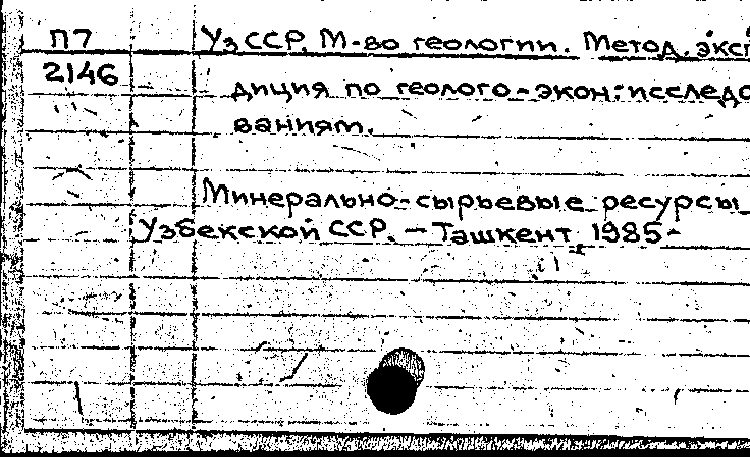 П7 УзССР. М-во геологии. Метод. экспе
2146 диция по геолого-экон. исследо
ваниям.
Минерально-сырьевые ресурсы
Узбекской ССР. – Ташкент, 1985-